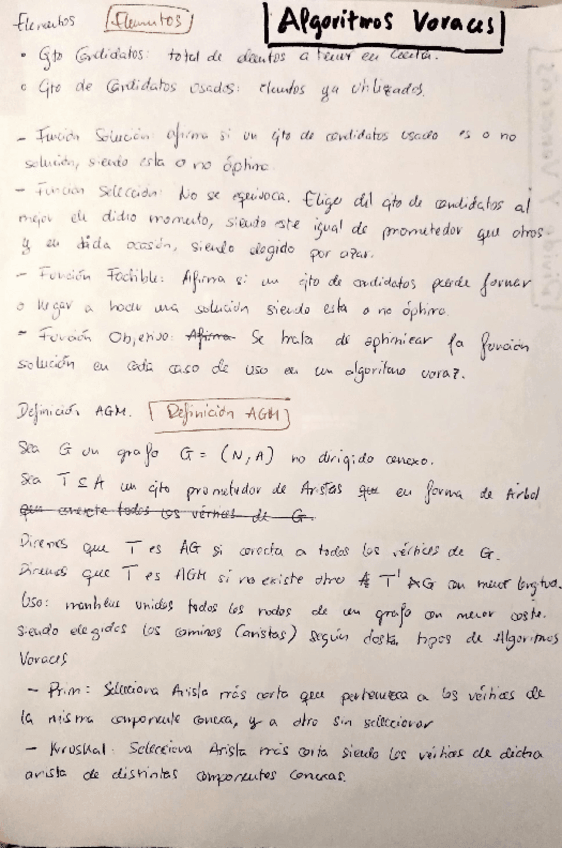 Algoritmos Voraces
Elementos Elementos
• Cjto Candidatos: total de elementos a tener en cuenta.
• Cjto de Candidatos usados: elementos ya utilizados.
- Función Solución: Afirma si un cjto de candidatos usado es o no
solución, siendo esta o no óptima.
- Función Selección: No se equivoca. Elige del cjto de candidatos al
mejor en dicho momento, siendo este igual de prometedor que otros
y en dicha ocasión, siendo elegido por azar.
- Función Factible: Afirma si un cjto de candidatos puede formar
o llegar a hacer una solución siendo esta o no óptima.
- Función Objetivo: Afirma Se trata de optimizar la función
solución en cada caso de uso en un algoritmo voraz.
Definición AGM. Definición AGM
Sea G un grafo G = (N, A) no dirigido conexo.
Sea T ⊆ A un cjto prometedor de Aristas que en forma de Árbol
que conecte todos los vértices de G.
Diremos que T es AG si conecta a todos los vértices de G.
Diremos que T es AGM si no existe otro T' AG con menor longitud.
Uso: mantener unidos todos los nodos de un grafo con menor coste.
siendo elegidos los caminos (aristas) según tipos de Algoritmos
Voraces
- Prim: Selecciona Arista más corta que pertenezca a los vértices de
la misma componente conexa, y a otro sin seleccionar
- Kruskal: Selecciona Arista más corta siendo los vértices de dicha
arista de distintas componentes conexas.